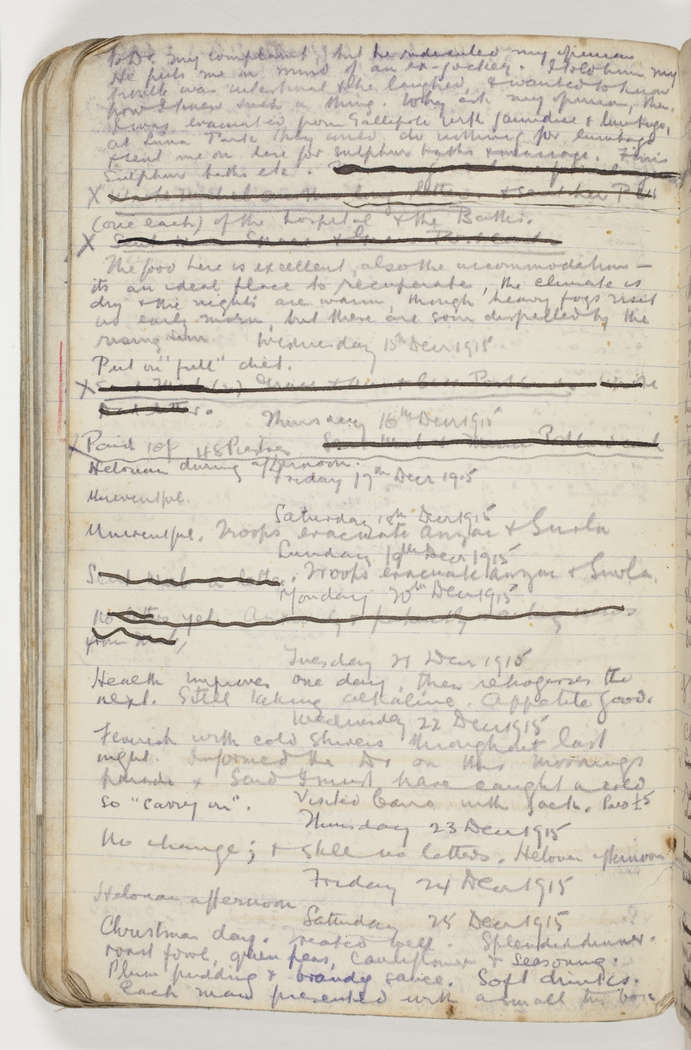 to Dr. my complaint, but he ridiculed my opinion
He puts me in mind of an ex-jockey. I told him my
trouble was intestinal & he laughed, & wanted to know
how I knew such a thing. Why ask my opinion, then.
I was evacuated from Gallipoli with jaundice & lumbago,
at Luna Park they could do nothing for lumbago
& sent me on here for sulphur baths & massage. This
Sulphur baths etc.
X letter & sent her P Cs
(one each) of the hospital & the Baths.
X Sent
The food here is excellent, also the accommodation —
its an ideal place to recuperate, the climate is
dry & the nights are warm, though heavy fogs visit
us early morn, but these are soon dispelled by the
rising sun Wednesday 15th Decr 1915
Put on "full" diet.
X Grace
letter.
Thursday 16th Decr 1915
Paid 10/- 48 Piastres
Helouan during afternoon.
Friday 17th Decr 1915
Uneventful.
Saturday 18th Decr 1915
Uneventful. Troops evacuate Anzac & Suvla
Sunday 19th Decr 1915
Sent a letter. Troops evacuate Anzac & Suvla.
Monday 20th Decr 1915
No letter yet.
from
Tuesday 21 Decr 1915
Health improves one day, then retrogresses the
next. Still taking alkaline. Appetite good.
Wednesday 22 Decr 1915
Feverish with cold shivers throughout last
night. Informed the Dr on this mornings
parade & said I must have caught a cold
so "carry on". Visited Cairo with Jack. Paid £5
Thursday 23 Decr 1915
No change; & still no letters. Helouan afternoon
Friday 24 Decr 1915
Helouan afternoon
Saturday 25 Decr 1915
Christmas day. Treated well. Splendid dinner.
roast fowl, green peas, cauliflower & seasoning.
Plum pudding & brandy sauce. Soft drinks.
Each man presented with a small tin box